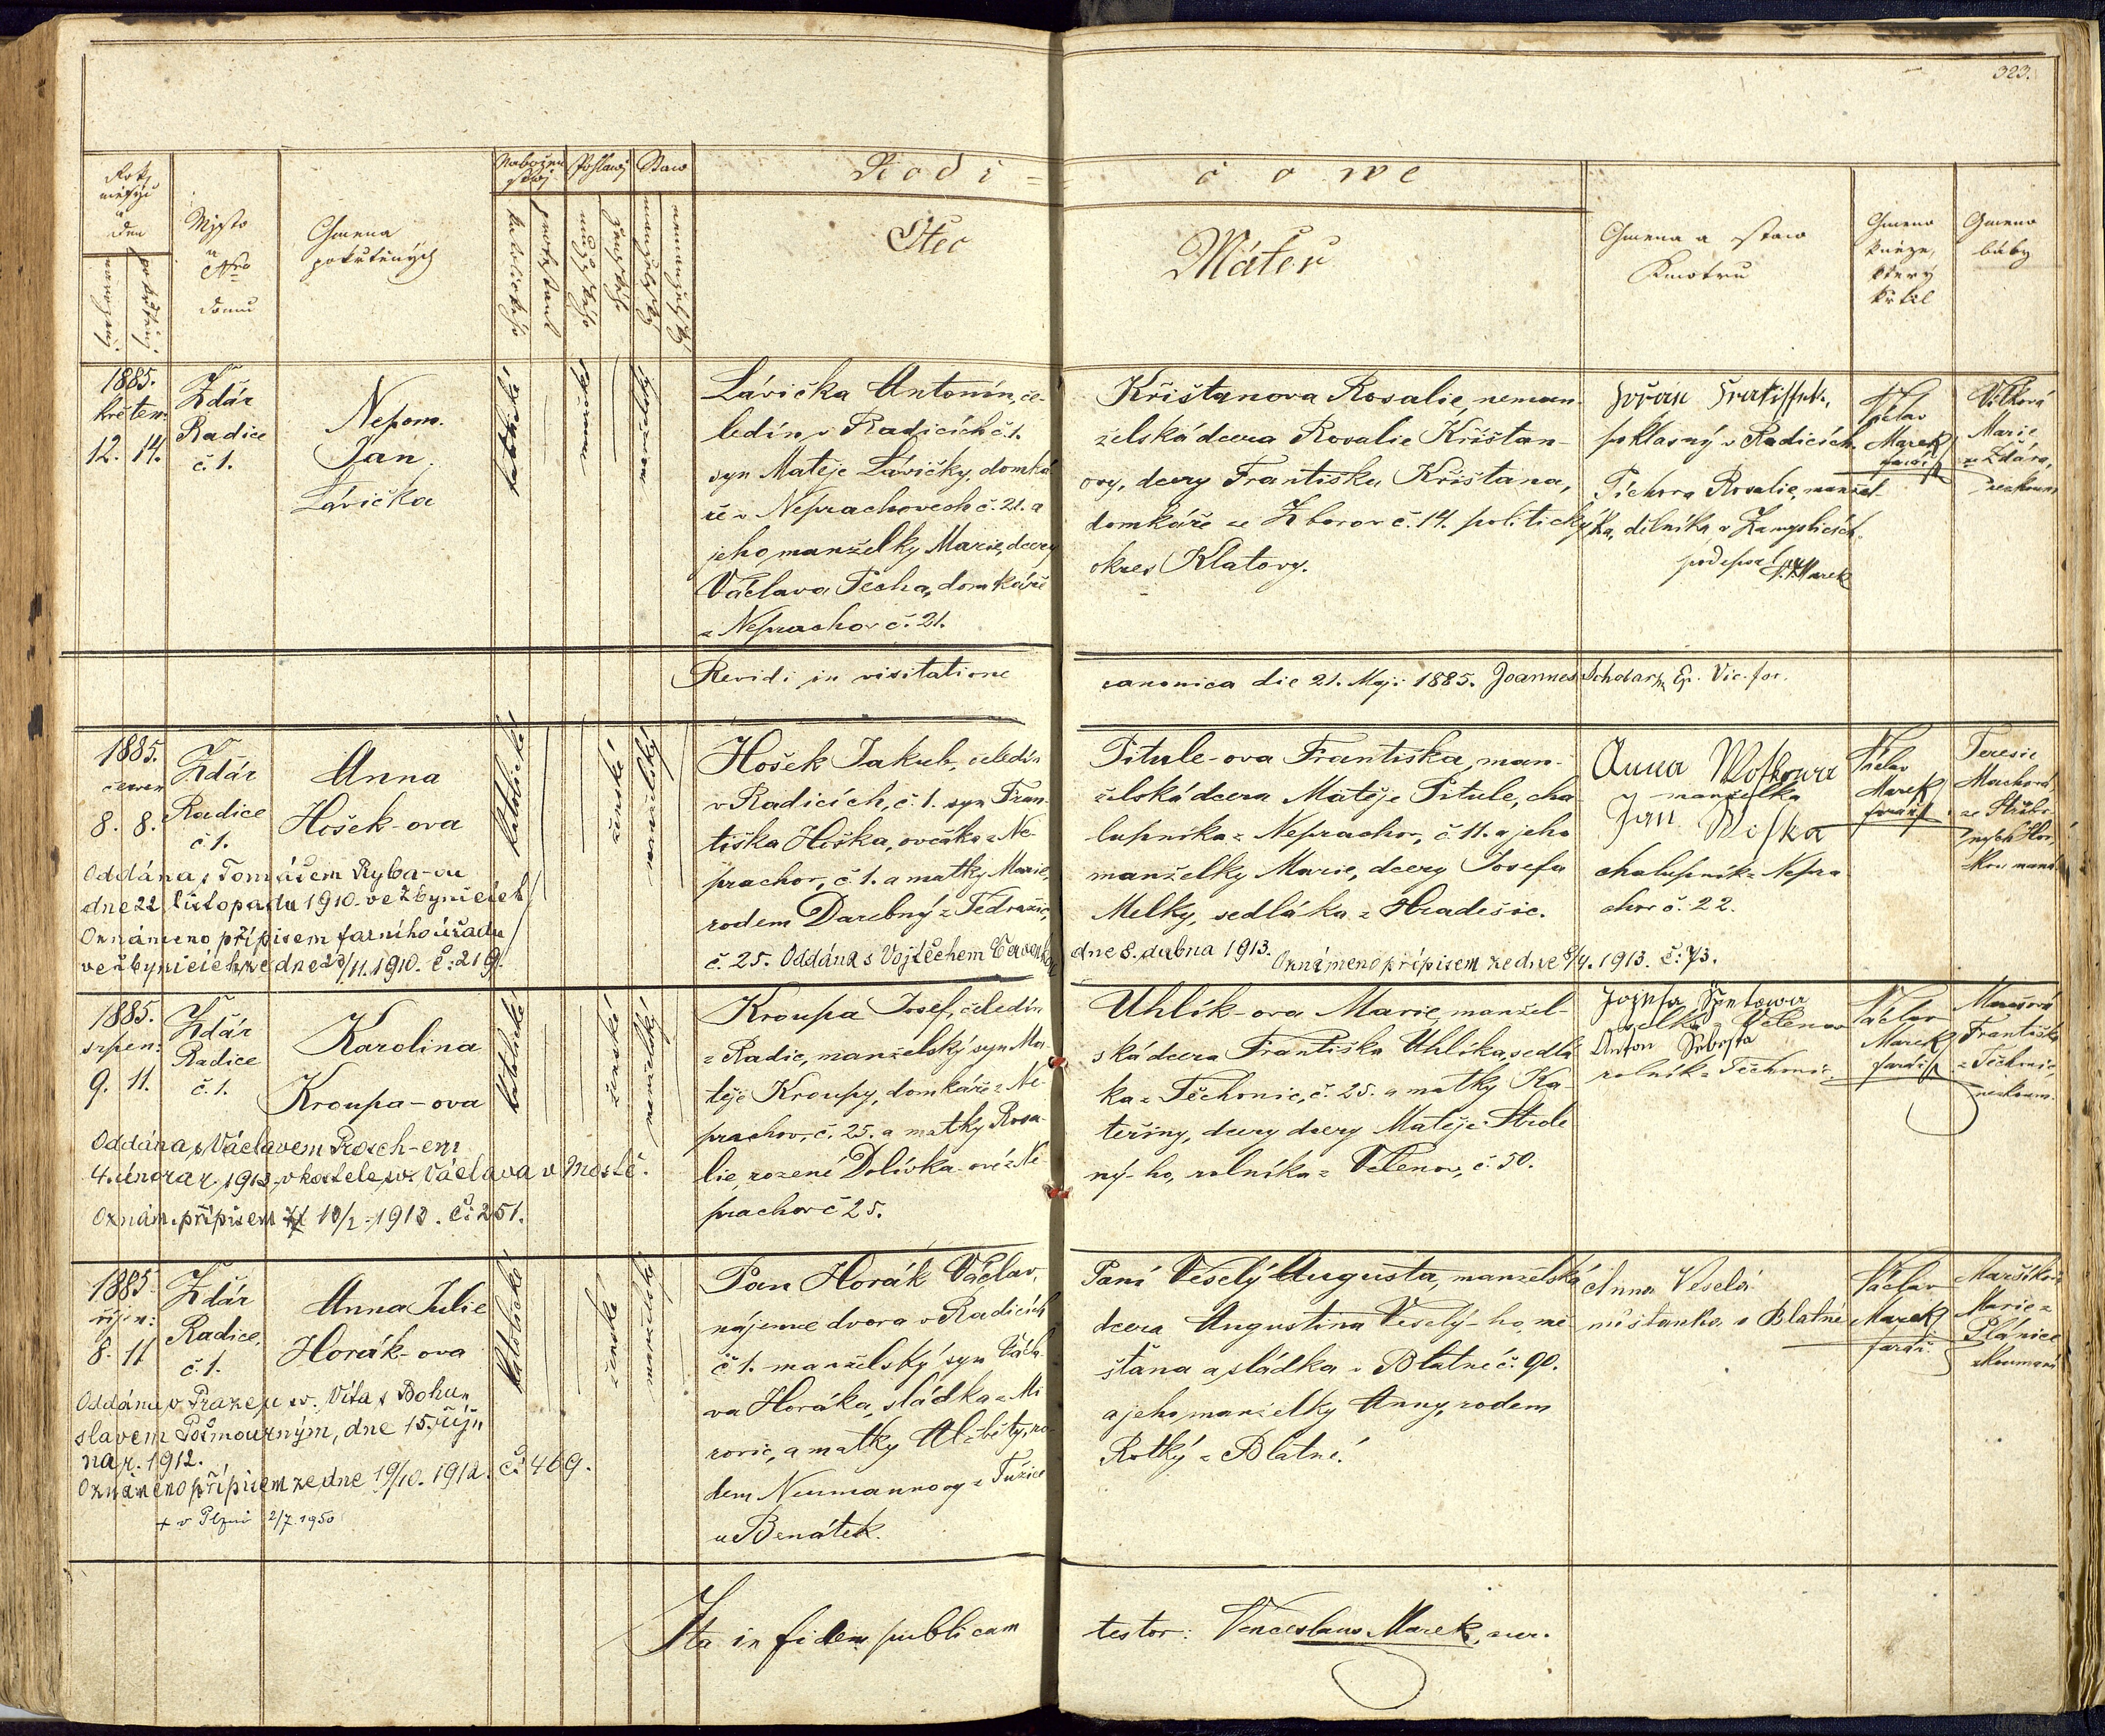 323.
Rok, měsýc a den
narozenj. pokřtěnj.
Mjsto a Nro domu
Gmena pokřtěných
Nábožen stwj
katolického
protestant
Pohlawj
mužského
ženského
Staw
manželský
nemanželský
Rodi= čowé
Otec
Máteř
Gmena a staw Kmotrů
Gmeno kněze, který křtil
Gmeno báby
1885.
květen:
12. 14.
Ždár
Radice
č. 1.
Nepom.
Jan
Lávička
katolické
Lávička Antonín, če-
ledín v Radicích č. 1.
syn Matěje Lávičky, domká
ře v Neprachovech č. 21. a
jeho manželky Marie, dcery
Václava Pecha, domkáře
z Neprachov č. 21.
Křišťanova Rosalie, neman
želská dcera Rosalie Křišťan-
ovy, dcery Františka Křišťana,
domkáře ze Zborov č. 14. politický
okres Klatovy.
poklasný v Radicích.
Rosalie, manžel-
ka, dělníka
V. Marek
Václav
Marek
farář
Vítková
Marie
z Ždára,
nezkoum.
Revidi in visitatione canonica die 21. Maji 1885. Joannes Ep. Vic. for.
1885.
červen
8. 8.
Ždár
Radice
č. 1.
Anna
Hošek-ova
katolické
ženské
manželský
Hošek Jakub, čeledín
v Radicích, č. 1. syn Fran-
tiška Hoška, ovčáka z Ne-
prachov, č. 1. a matky Marie,
rodem Darebný z Tědražic,
č. 25. Oddána s Vojtěchem dne 8. dubna 1913. Oznámeno přípisem ze dne 8/4. 1913. č: 73.
Pitule-ova Františka, man-
želská dcera Matěje Pitule, cha
lupníka z Neprachov, č. 11. a jeho
manželky Marie, dcery Josefa
Melky, sedláka z Hradešic.
Anna
manželka
Jan
chalupník z Nepra
chov č. 22.
Václav
Marek
farář
Teresie
Machová
Oddána s Tomášem Ryba-ou
dne 22. listopadu 1910. ve Zbynicích
Oznámeno přípisem farního úřadu
ve Zbynicích ze dne 28/11. 1910. č: 219.
1885.
srpen:
9. 11.
Ždár
Radice
č. 1.
Karolina
Kroupa-ova
katolické
ženské
manželský
Kroupa Josef, čeledín
z Radic, manželský syn Ma
těje Kroupy, domkáře z Ne
prachov, č. 25. a matky Rosa-
lie, rozené Dolívka-ové z Ne
prachov č 25.
Uhlík-ova Marie, manžel-
ská dcera Františka Uhlíka, sedlá
ka z Těchonic, č. 25. a matky Ka
teřiny, dcery dcery Matěje Strole
ný-ho, rolníka z Velenov, č. 50.
selka z Velenov
Anton Sebesta
rolník z Těchonic.
Václav
Marek
farář
Marešová
Františka
z Těchonic,
nezkoum.
Oddána s Václavem Rosch-em
4. února r. 1913. v kostele sv. Václava v Mostě.
Oznám. přípisem 10/2. 1913. č: 251.
1885
říjen:
8. 11
Ždár
Radice,
č. 1.
Anna Julie
Horák-ova
katolické
ženské
manželské
Pan Horák Václav,
nájemce dvora v Radicích
č 1. manželský syn Václa
va Horáka, sládka z Mi
rovic, a matky Alžběty, ro-
dem Neumannovy z Tuřice
u Benátek.
Paní Veselý Augusta, manželská
dcera Augustina Veselý-ho, mě
šťana a sládka v Blatné č. 90.
a jeho manželky Anny, rodem
Rotký z Blatné.
Anna Veselá
měšťanka v Blatné
Václav
Marek
farář.
Maršíková
Marie z
Plánice
zkoumaná
Oddána v Praze u sv. Víta s Bohu-
slavem Pošmourným, dne 15. říj-
na r. 1912.
Oznámeno přípisem ze dne 19/10. 1912. č: 469.
+ v Plzni 2/7. 1950
Ita in fidem publicam testor: Venceslaus Marek, cur.